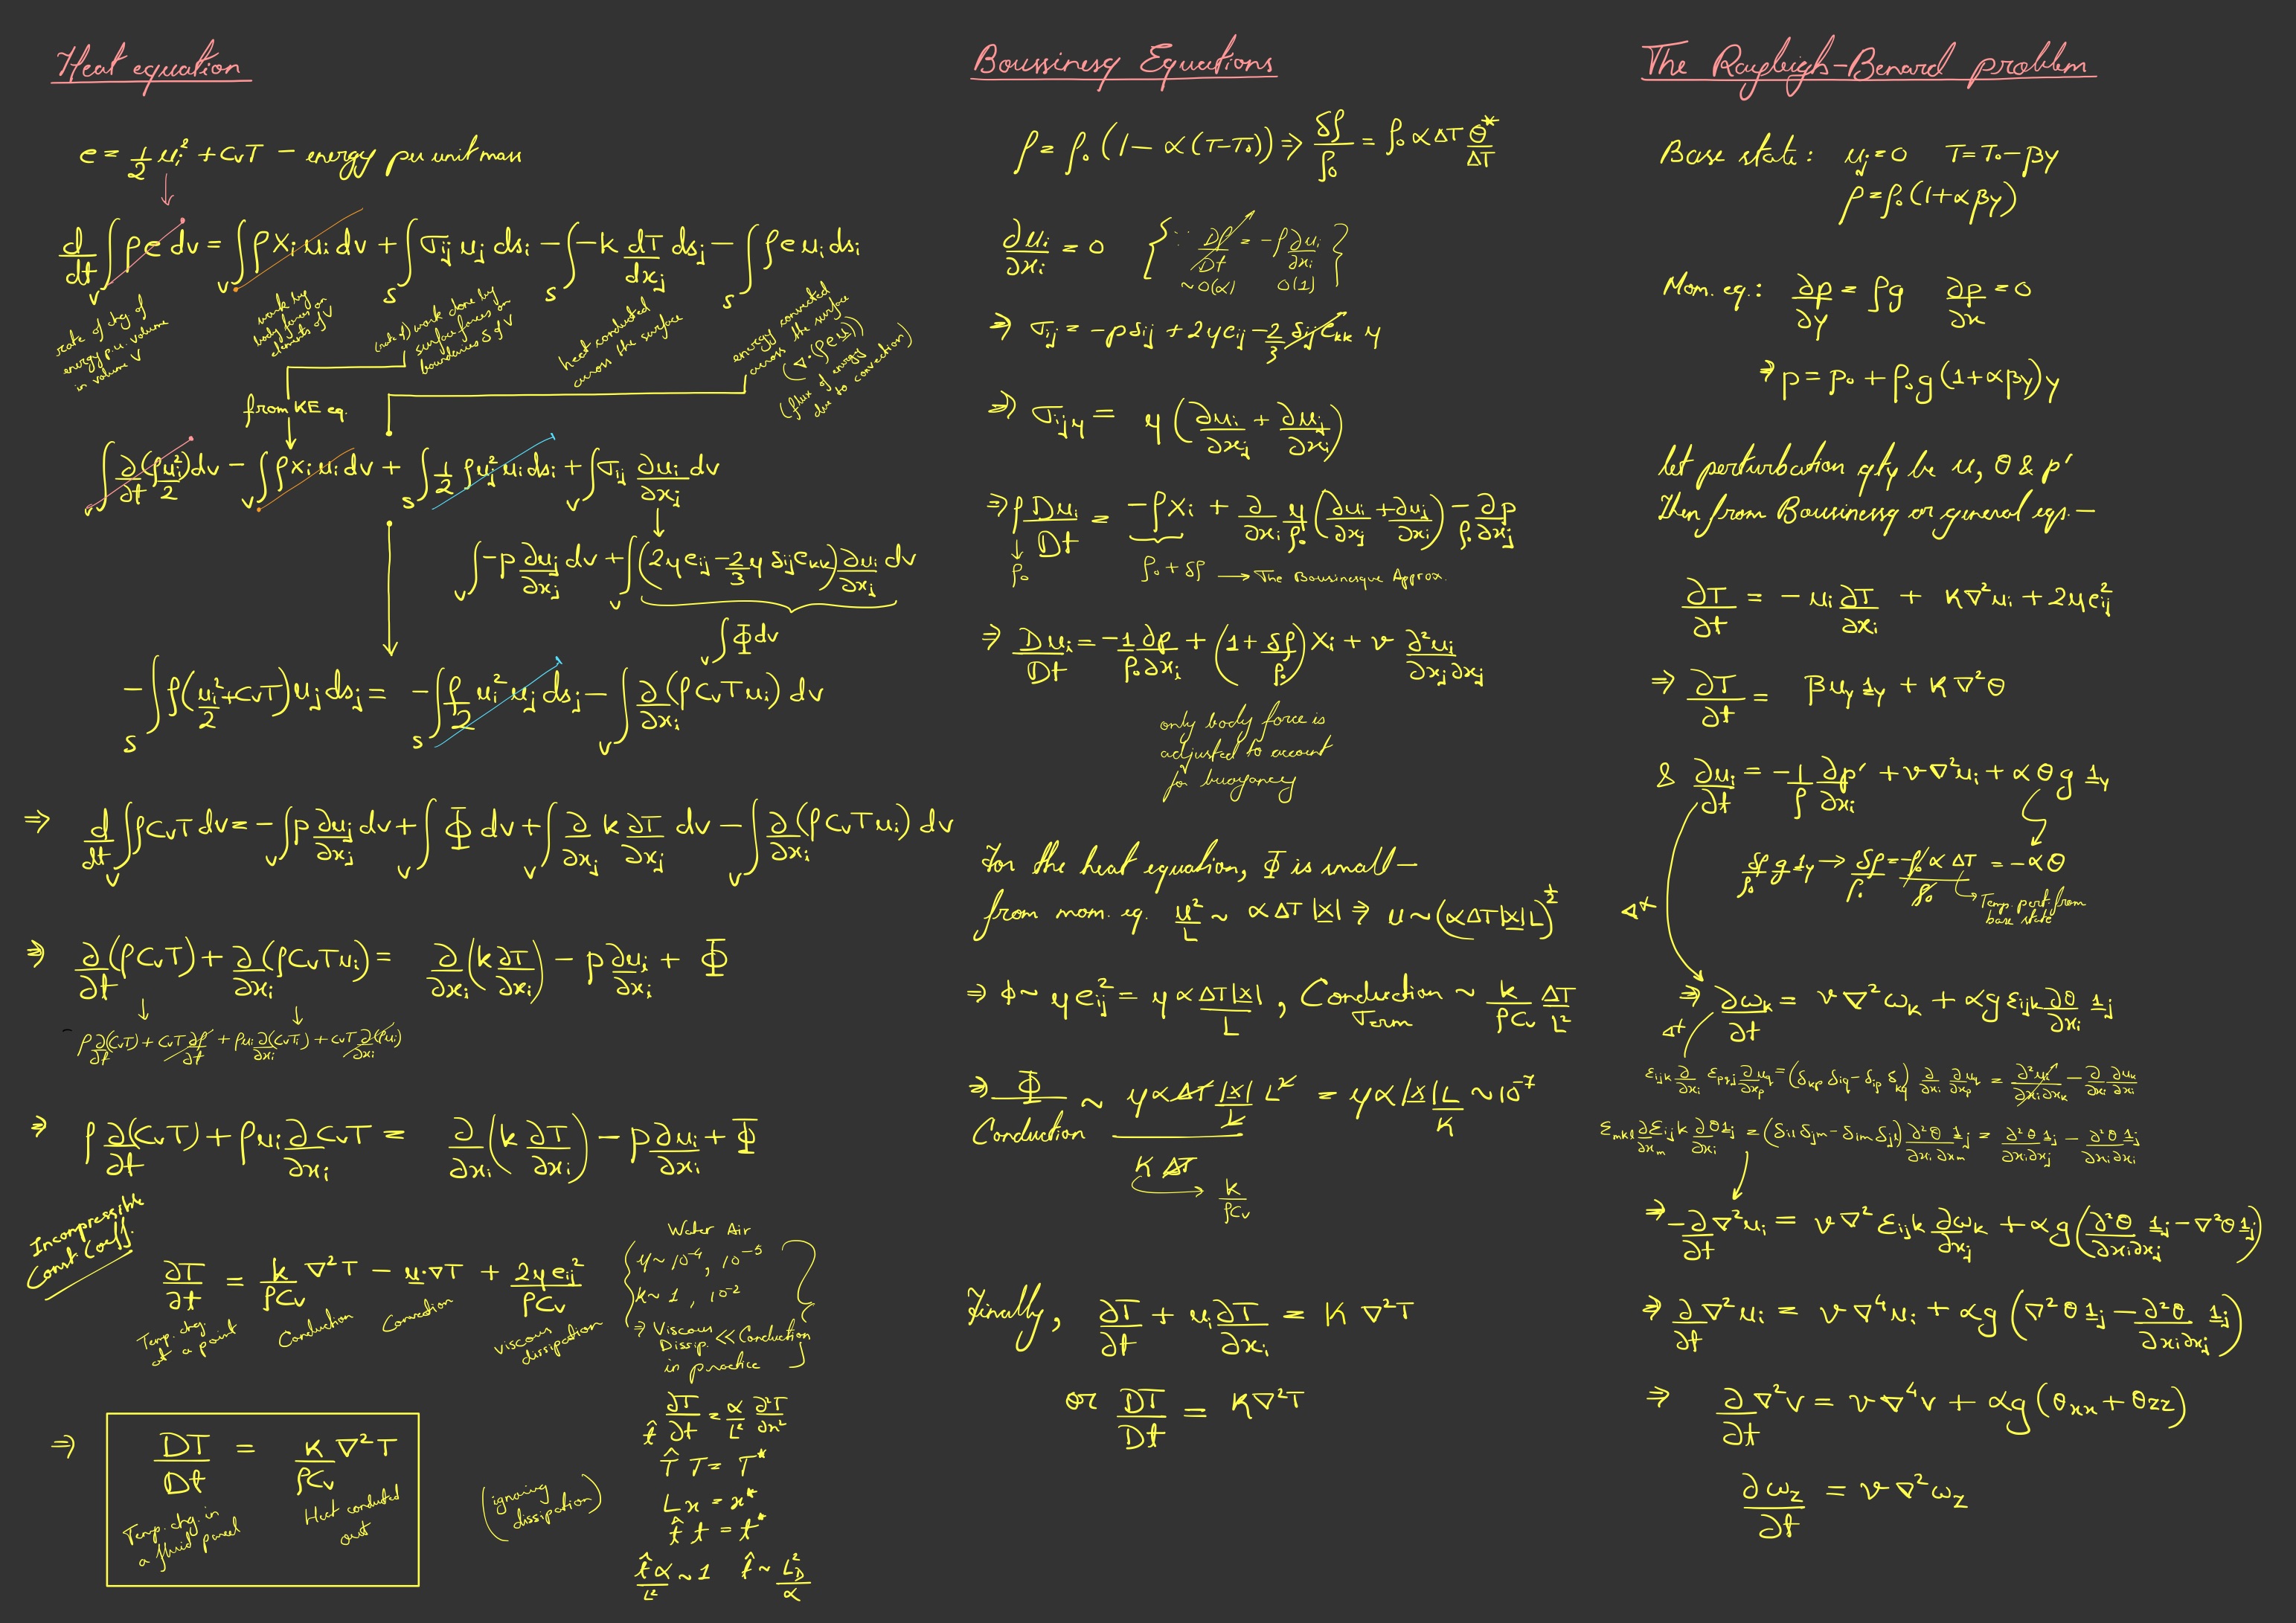 Heat equation
e = 1/2 u_i² + C_v T − energy per unit mass
d/dt ∫_V ρe dv = ∫_V ρX_i u_i dv + ∫_S σ_ij u_j ds_i − ∫_S −k dT/dx_j ds_j − ∫_S ρe u_i ds_i
rate of chg of energy p.u. volume in volume V
work by body forces on elements of V
(rate of) work done by surface forces on boundaries S of V
heat conducted across the surface
energy convected across the surface
(∇·(ρeu))
(flux of energy due to convection)
from KE eq.
∫_V ∂/∂t(ρu_i²/2) dv − ∫_V ρX_i u_i dv + ∫_S 1/2 ρu_j² u_i ds_i + ∫_V σ_ij ∂u_i/∂x_j dv
∫_V −p ∂u_j/∂x_j dv + ∫_V (2μe_ij − 2/3 μ δ_ij e_kk) ∂u_i/∂x_j dv
∫_V Φ dv
−∫_S ρ(u_i²/2 + C_v T) u_j ds_j = −∫_S ρ/2 u_i² u_j ds_j − ∫_V ∂/∂x_i (ρC_v T u_i) dv
⇒ d/dt ∫_V ρC_v T dv = −∫_V p ∂u_j/∂x_j dv + ∫_V Φ dv + ∫_V ∂/∂x_j k ∂T/∂x_j dv − ∫_V ∂/∂x_i (ρC_v T u_i) dv
⇒ ∂/∂t (ρC_v T) + ∂/∂x_i (ρC_v T u_i) = ∂/∂x_i (k ∂T/∂x_i) − p ∂u_i/∂x_i + Φ
ρ ∂/∂t (C_v T) + C_v T ∂ρ/∂t + ρu_i ∂(C_v T)/∂x_i + C_v T ∂(ρu_i)/∂x_i
⇒ ρ ∂/∂t (C_v T) + ρu_i ∂/∂x_i C_v T = ∂/∂x_i (k ∂T/∂x_i) − p ∂u_i/∂x_i + Φ
Incompressible
Const. Coeff.
∂T/∂t = k/ρC_v ∇²T − u·∇T + 2μe_ij²/ρC_v
Temp. chg. at a point
Conduction
Convection
viscous dissipation
Water Air
μ ~ 10⁻⁴, 10⁻⁵
k ~ 1, 10⁻²
⇒ Viscous Dissip. << Conduction in practice
⇒ DT/Dt = K/ρC_v ∇²T
Temp. chg. in a fluid parcel
Heat conducted out
(ignoring dissipation)
∂T/t̂ ∂t = α/L² ∂²T/∂x²
T̂ T = T*
L x = x*
t̂ t = t*
t̂α/L² ~ 1 t̂ ~ L_D²/α
Boussinesq Equations
ρ = ρ₀ (1 − α(T−T₀)) ⇒ δρ/ρ₀ = ρ₀ α ΔT θ*/ΔT
∂u_i/∂x_i = 0 {∵ Dρ/Dt = −ρ ∂u_i/∂x_i}
~O(α) O(1)
⇒ σ_ij = −pδ_ij + 2μe_ij − 2/3 δ_ij e_kk μ
⇒ σ_ij,μ = μ (∂u_i/∂x_j + ∂u_j/∂x_i)
⇒ ρ Du_i/Dt = −ρX_i + ∂/∂x_i μ/ρ₀ (∂u_i/∂x_j + ∂u_j/∂x_i) − ∂p/ρ₀∂x_j
ρ₀
ρ₀ + δρ → The Bousinesque Approx.
⇒ Du_i/Dt = −1/ρ₀ ∂p/∂x_i + (1 + δρ/ρ₀) X_i + ν ∂²u_i/∂x_j∂x_j
only body force is
adjusted to account
for buoyancy
For the heat equation, Φ is small −
from mom. eq. u²/L ~ αΔT|X| ⇒ u ~ (αΔT|X|L)^½
⇒ Φ ~ μe_ij² = μαΔT|X|/L, Conduction Term ~ k/ρC_v ΔT/L²
⇒ Φ/Conduction ~ μαΔT|X|/L L² / KΔT = μα|X|L/K ~ 10⁻⁷
k/ρC_v
Finally, ∂T/∂t + u_i ∂T/∂x_i = K ∇²T
or DT/Dt = K∇²T
The Rayleigh-Benard problem
Base state: u_j = 0 T = T₀ − βy
ρ = ρ₀ (1 + αβy)
Mom. eq.: ∂p/∂y = ρg ∂p/∂x = 0
⇒ p = p₀ + ρ₀g (1 + αβy) y
let perturbation qty be u, θ & p'
Then from Bousinessq or general eqs. −
∂T/∂t = −u_i ∂T/∂x_i + K∇²u_i + 2μe_ij²
⇒ ∂T/∂t = βu_y 1_y + K∇²θ
& ∂u_i/∂t = −1/ρ ∂p'/∂x_i + ν∇²u_i + αθg 1_y
δρ/ρ₀ g 1_y → δρ/ρ₀ = −ρ₀αΔT/ρ₀ = −αθ
Temp. pert. from base state
∇×
⇒ ∂ω_k/∂t = ν∇²ω_k + αg ε_ijk ∂θ/∂x_i 1_j
∇×
ε_ijk ∂/∂x_i ε_pqj ∂u_q/∂x_p = (δ_kp δ_iq − δ_ip δ_kq) ∂/∂x_i ∂u_q/∂x_p = ∂²u_i/∂x_i∂x_k − ∂/∂x_i ∂u_k/∂x_i
ε_mkl ∂/∂x_m ε_ijk ∂θ/∂x_i 1_j = (δ_il δ_jm − δ_im δ_jl) ∂²θ/∂x_i∂x_m 1_j = ∂²θ/∂x_i∂x_j 1_j − ∂²θ/∂x_i∂x_i 1_j
⇒ −∂/∂t ∇²u_i = ν∇² ε_ijk ∂ω_k/∂x_j + αg (∂²θ/∂x_i∂x_j 1_j − ∇²θ 1_j)
⇒ ∂/∂t ∇²u_i = ν∇⁴u_i + αg (∇²θ 1_j − ∂²θ/∂x_i∂x_j 1_j)
⇒ ∂/∂t ∇²v = ν∇⁴v + αg (θ_xx + θ_zz)
∂ω_z/∂t = ν∇²ω_z